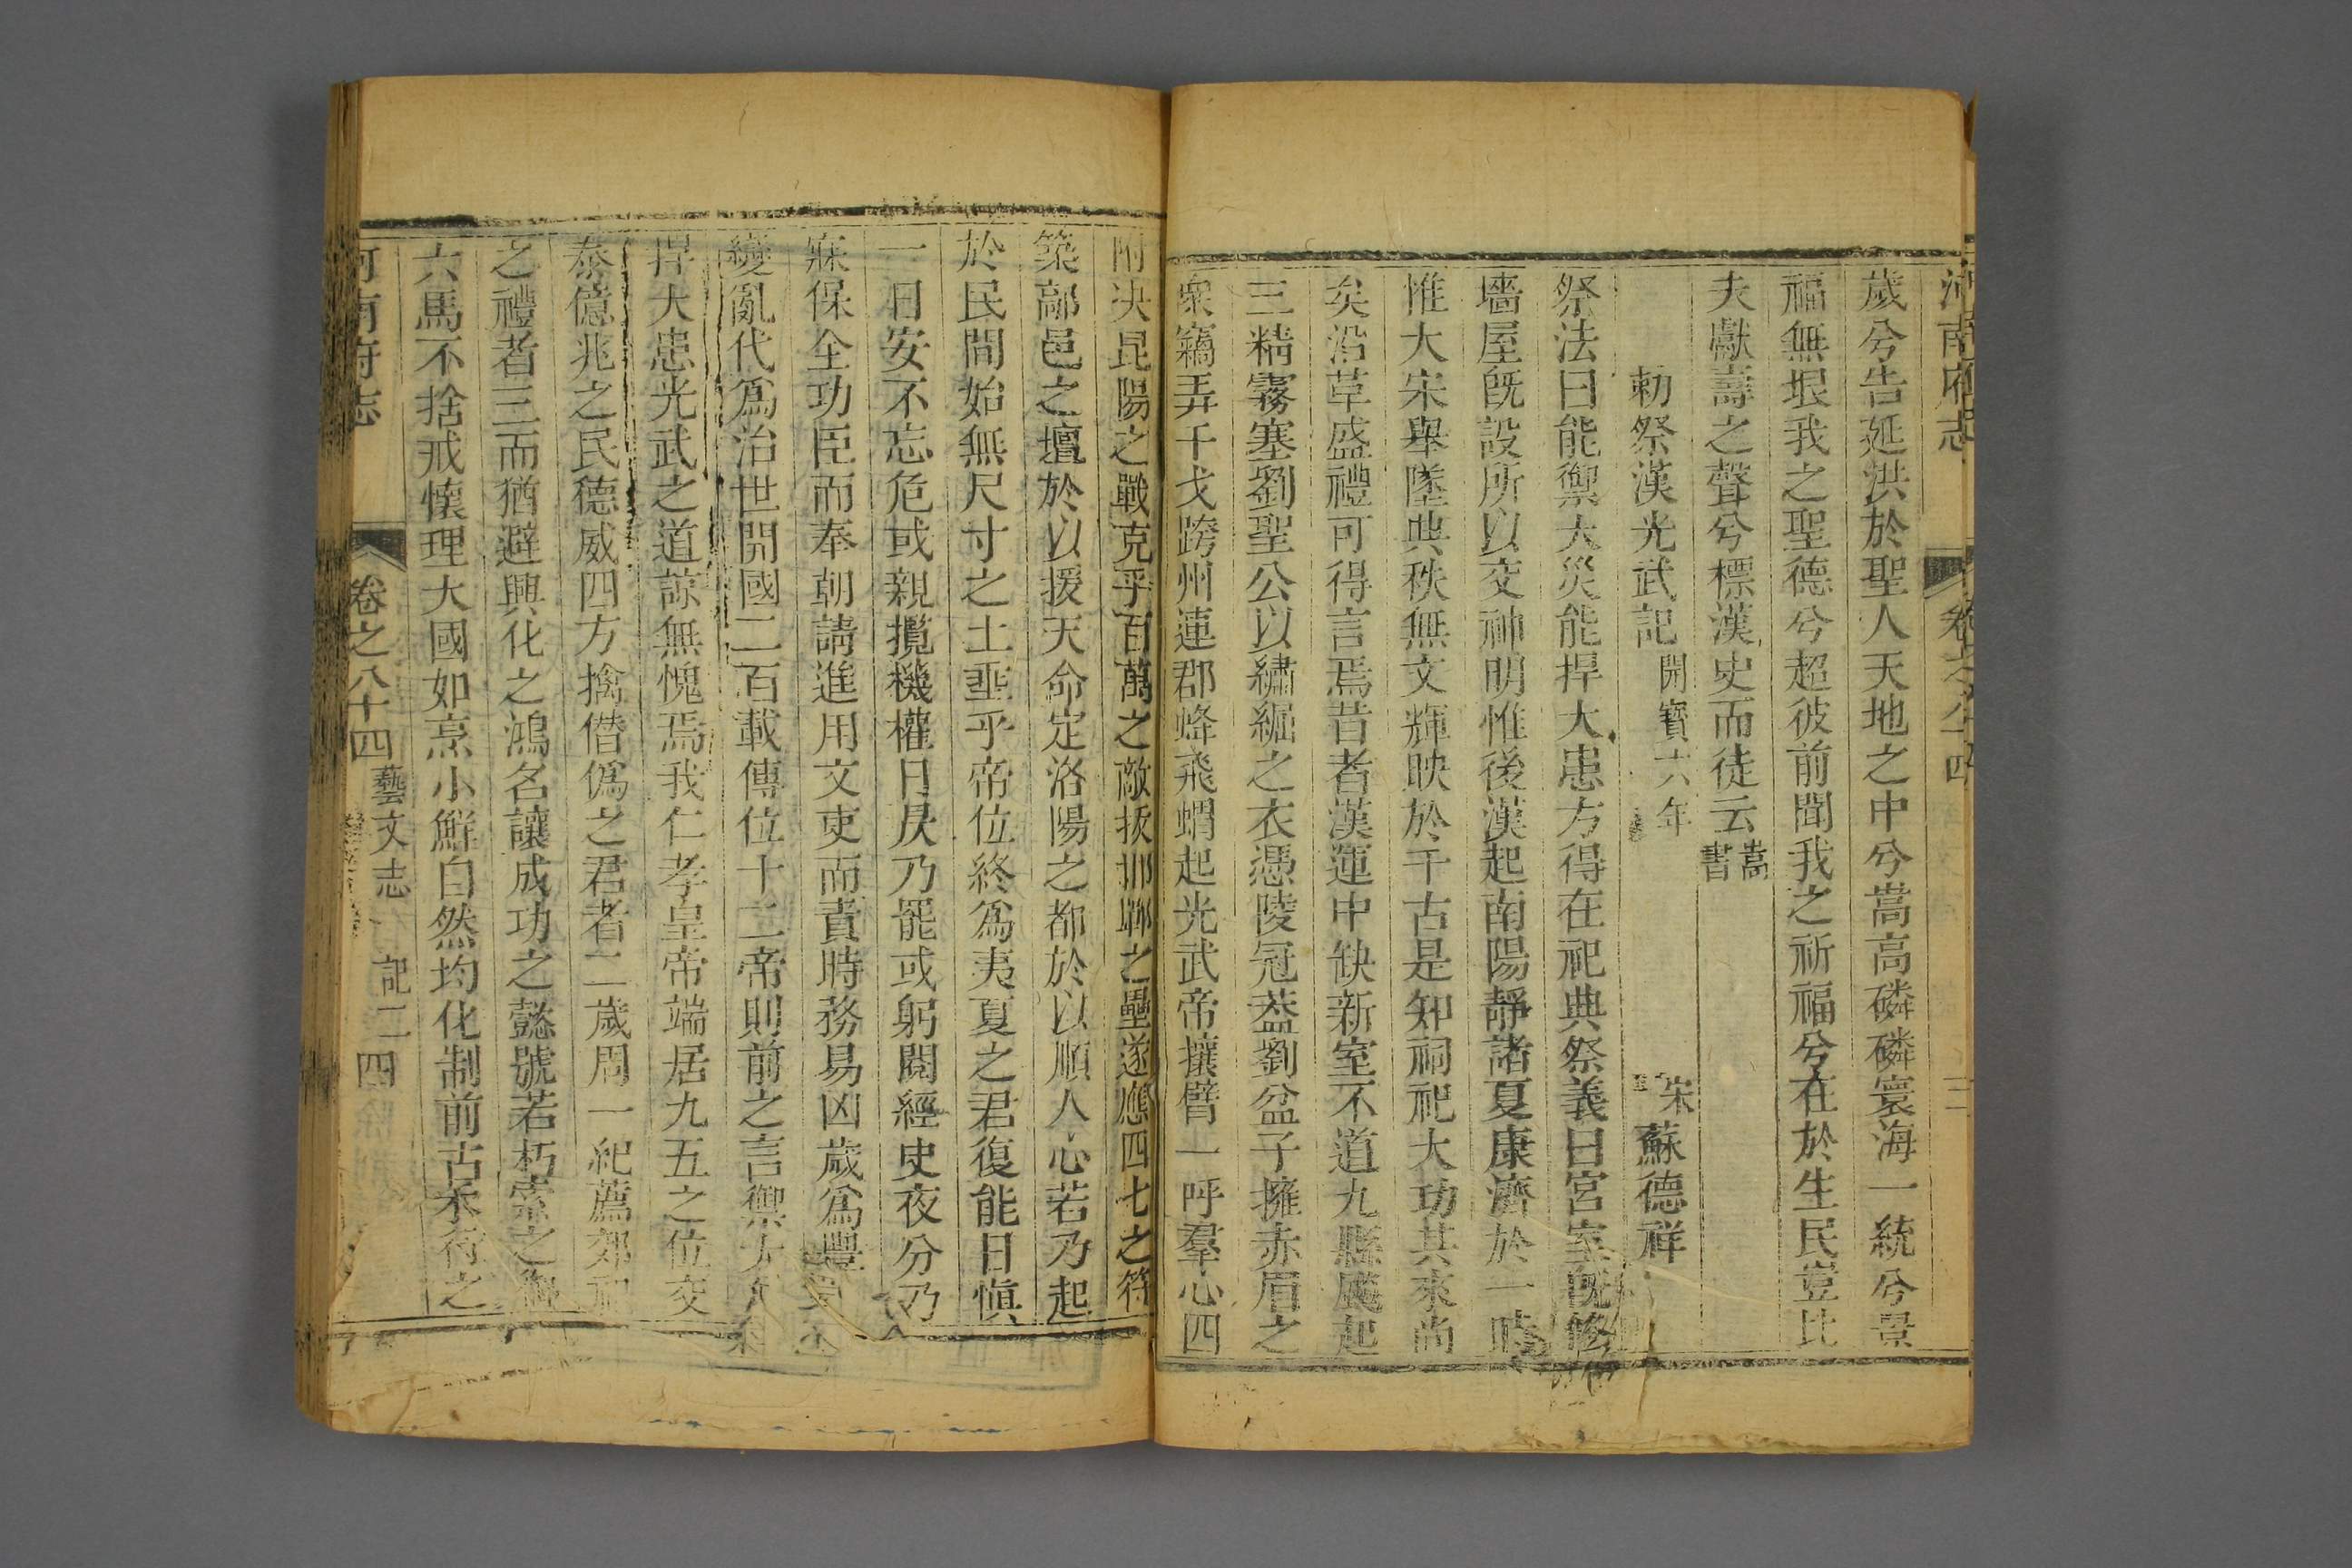 河南府志 卷之八十四 三
歲兮告延洪於聖人天地之中兮嵩高磷磷寰海一統兮景
福無垠我之聖德兮超彼前聞我之祈福兮在於生民豈比
夫獻壽之聲兮標漢史而徒云嵩書
勅祭漢光武記開寶六年 宋蘇德祥
祭法曰能禦大災能捍大患方得在祀典祭義曰宮室旣修
墻屋旣設所以交神明惟後漢起南陽靜諸夏康濟於一時
惟大宋舉墜典秩無文輝映於千古是知祠祀大功其來尚
矣沿革盛禮可得言焉昔者漢運中缺新室不道九縣飚起
三精霧塞劉聖公以繡䘿之衣憑陵冠葢劉盆子擁赤眉之
衆竊弄干戈跨州連郡蜂飛蝟起光武帝攘臂一呼羣心四
附决昆陽之戰克乎百萬之敵拔邯鄲之壘遂應四七之符
築鄗邑之壇於以援天命定洛陽之都於以順人心若乃起
於民間始無尺寸之土埀乎帝位終爲夷夏之君復能日愼
一日安不忘危或親攬機權日昃乃罷或躬閱經史夜分乃
寐保全功臣而奉朝請進用文吏而責時務易凶歲爲豐
變亂代爲治世開國二百載傳位十二帝則前之言禦大
捍大患光武之道諒無愧焉我仁孝皇帝端居九五之位交
泰億兆之民德威四方擒僭僞之君者二歲周一紀薦郊祀
之禮者三而猶避興化之鴻名讓成功之懿號若朽索之御
六馬不捨戒懷理大國如烹小鮮自然均化制前古秉行之
河南府志 卷之八十四 藝文志 記二 四